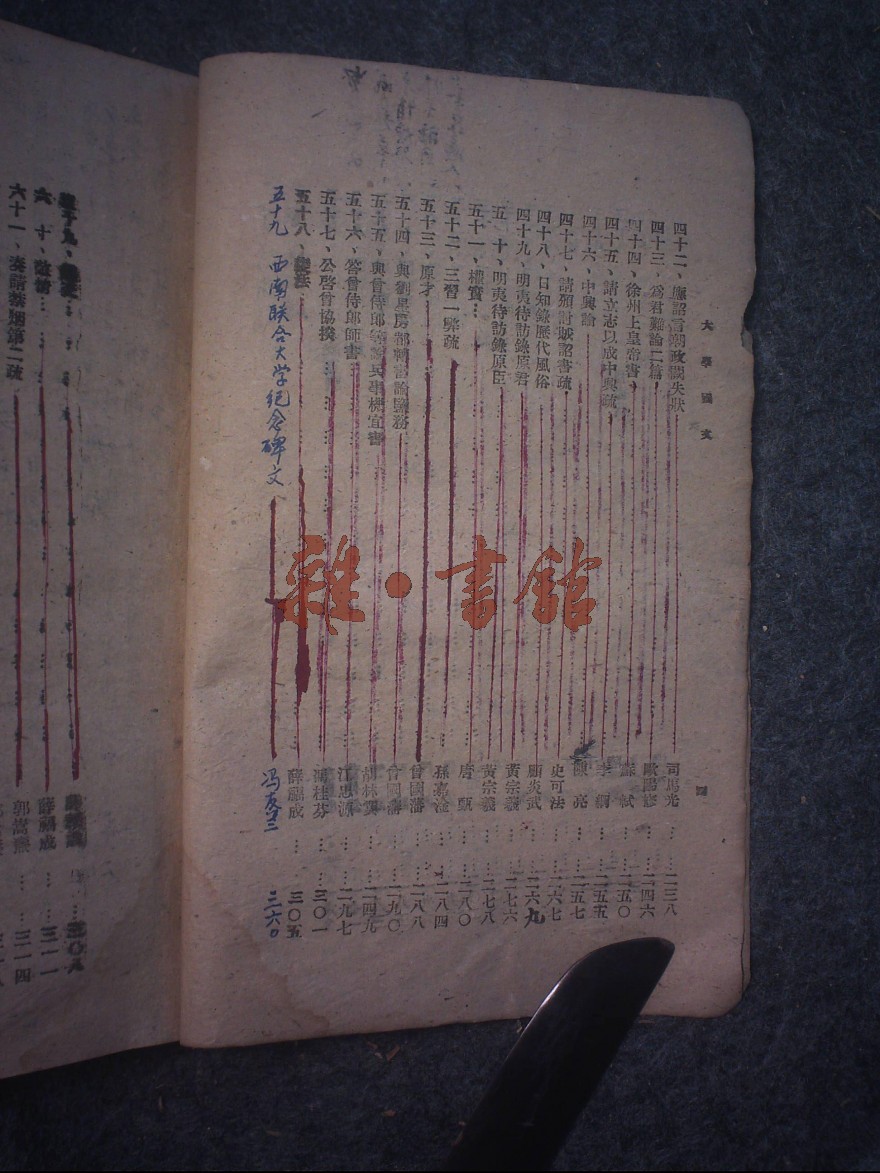 大學國文
四
四十二、應詔言朝政闕失狀 司馬光 二三八
四十三、為君難論二篇 歐陽修 二四六
四十四、徐州上皇帝書 蘇軾 二五〇
四十五、請立志以成中興疏 李綱 二五五
四十六、中興論 陳亮 二五七
四十七、請頒討賊詔書疏 史可法 二六七
四十八、日知錄歷代風俗 顧炎武 二六九
四十九、明夷待訪錄原君 黃宗羲 二七六
五十、明夷待訪錄原臣 黃宗羲 二七八
五十一、權實 唐甄 二八〇
五十二、三習一弊疏 孫嘉淦 二八四
五十三、原才 曾國藩 二八八
五十四、與劉星房都轉書論鹽務 曾國藩 二九〇
五十五、與曾侍郎等論兵事機宜書 胡林翼 二四九
五十六、答曾侍郎師書 江忠源 二九七
五十七、公啓曾協揆 馮桂芬 三〇一
五十八、變法 薛福成 三〇五
五十九 西南联合大学纪念碑文 冯友兰 三六〇
六十、 薛福成 三一一
六十一、奏請禁烟第二疏 郭嵩燾 三一四
雜·書館